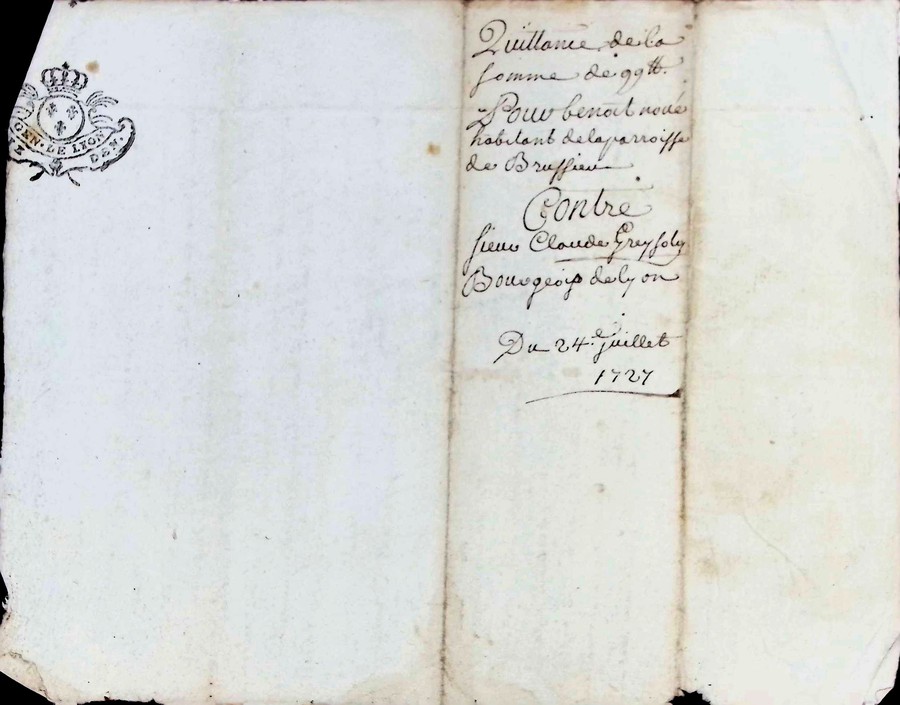 GEN. DE LYON
DEN.
Quittance de la
somme de 99 tt.
Pour benoit
habitant de la parroisse
de Brussieu
Contre
sieur Claude Greysolon
Bourgeois de lyon
Du 24.e Juillet
1727